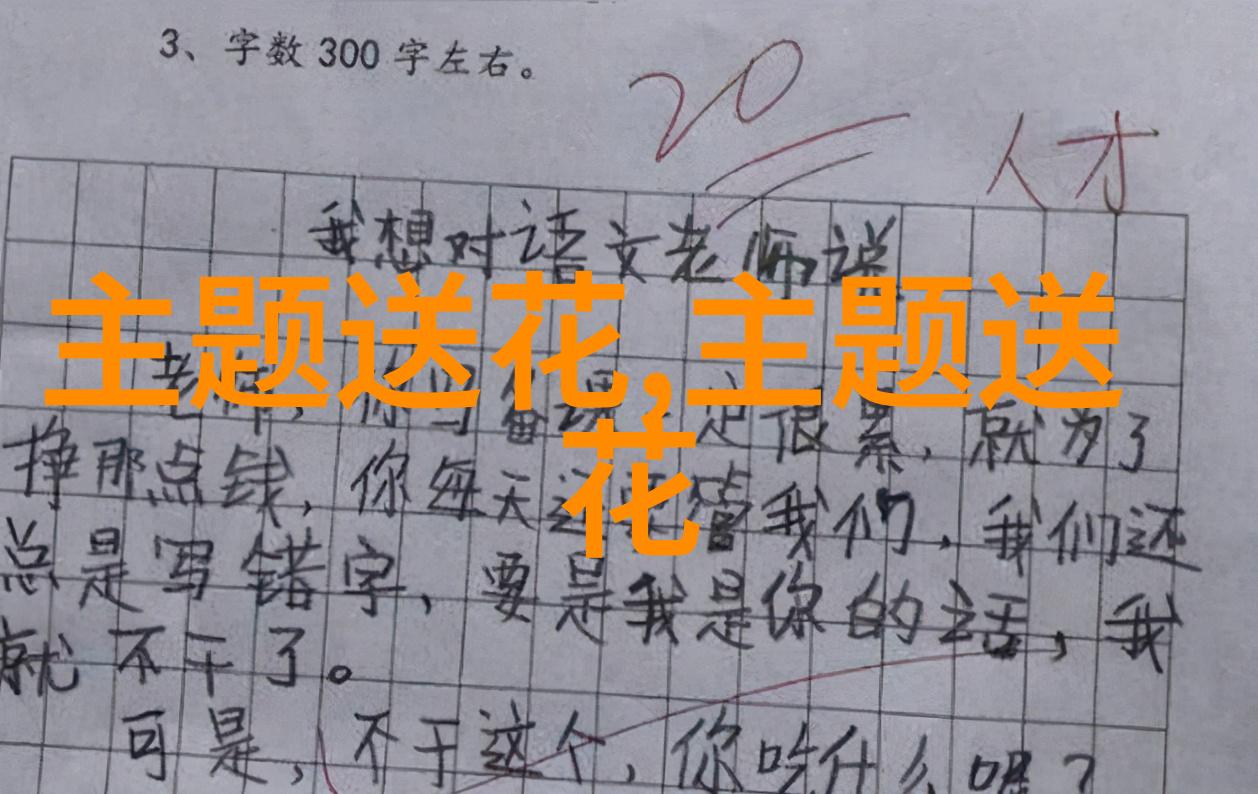 3、字数300字左右。
20
人才
我想对语文老师说
主题送花,主题送
花
老师,你写备课一定很累,就为了
挣那点钱,你每天还要管我们,我们还
总是写错字,要是我是你的话,我
就不干了。
可是,不干这个,你吃什么呢?